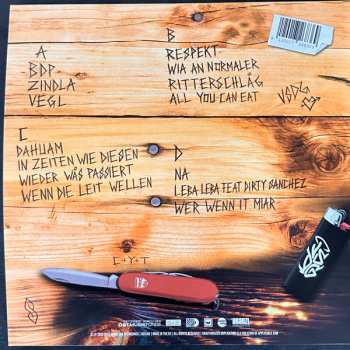 A
BDP
ZINDLA
VEGL
B
RESPEKT
WIA AN NORMALER
RITTERSCHLÅG
ALL YOU CAN EAT
C
DAHUAM
IN ZEITEN WIE DIESEN
WIEDER WÅS PASSIERT
WENN DIE LEIT WELLEN
D
NA
LEBA LEBA FEAT DIRTY SANCHEZ
WER WENN IT MIAR
C+Y+T